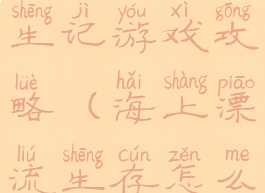 shēng jì yóu xì gōng
生记游戏攻
lüè hǎi shàng piāo
略（海上漂
liú shēng cún zěn me
流生存怎么